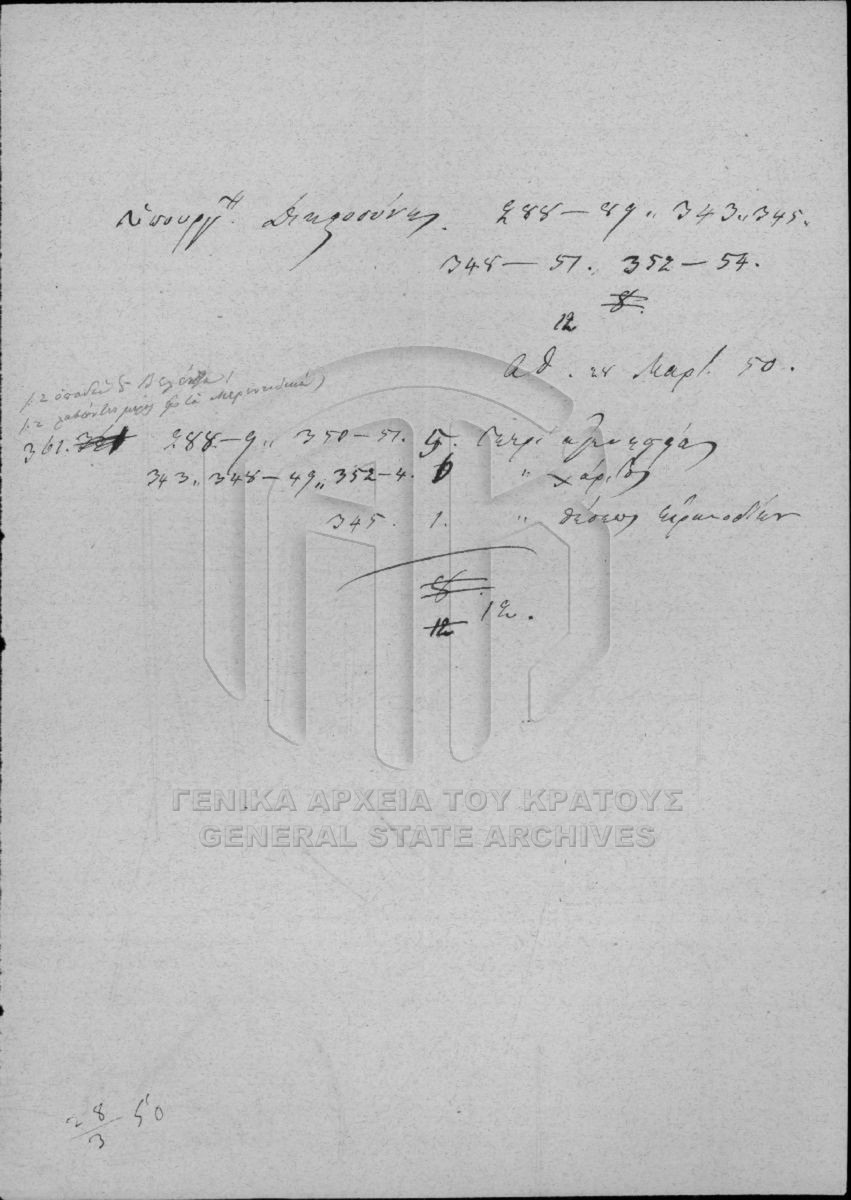 Υπουργ. Δικαιοσύνης. 288 — 89 „ 343 „ 345 „
348 — 51 „ 352 — 54.
8.
12
Αθ. 28 Μαρτ. 50.
361. 288 — 9 „ 350 — 51. 5. περί
343 „ 348 — 49 „ 352 — 4. 6 „ χάριτος
345. 1. „ θέσεως Ειρηνοδικών
8.
12 12.
ΓΕΝΙΚΑ ΑΡΧΕΙΑ ΤΟΥ ΚΡΑΤΟΥΣ
GENERAL STATE ARCHIVES
28/3 50